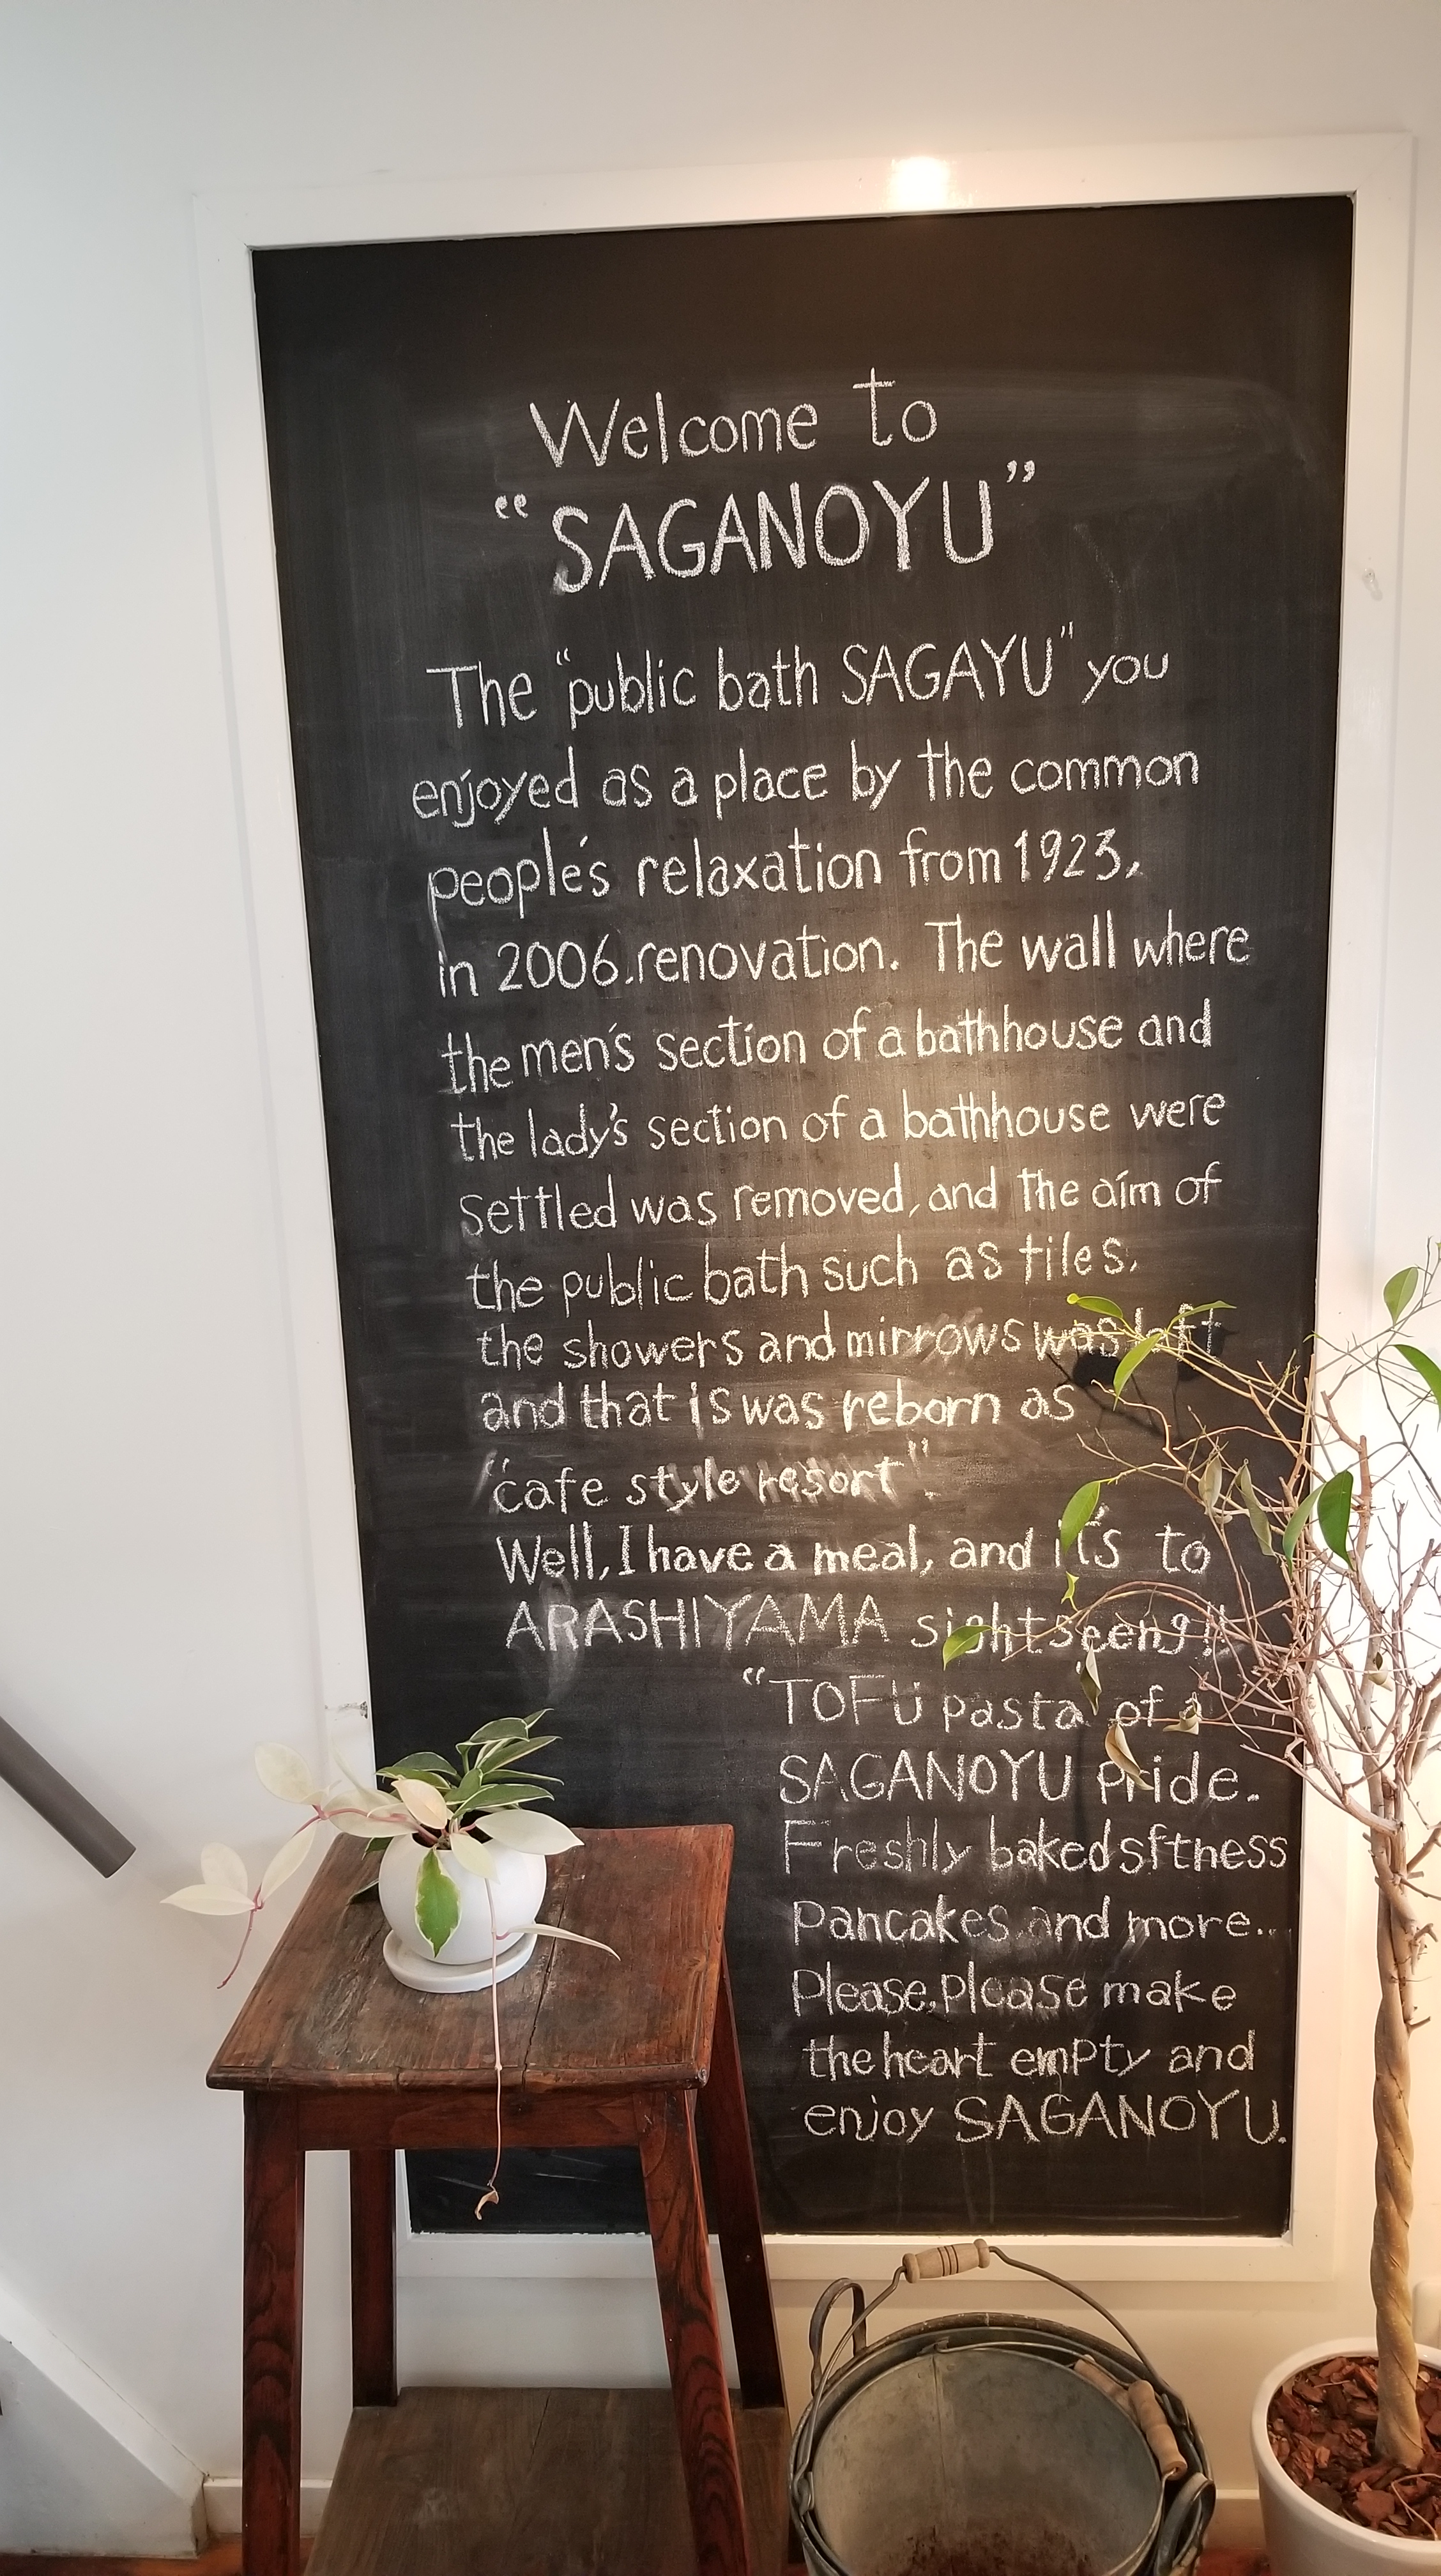 Welcome to
“SAGANOYU”
The “public bath SAGAYU” you
enjoyed as a place by the common
people's relaxation from 1923,
in 2006.renovation. The wall where
the men's section of a bathhouse and
the lady's section of a bathhouse were
settled was removed, and the aim of
the public bath such as tiles,
the showers and mirrows was left
and that is was reborn as
“cafe style resort”.
Well, I have a meal, and it's to
ARASHIYAMA sightseeng!!
“TOFU pasta of a
SAGANOYU Pride.
Freshly baked sftness
Pancakes and more..
Please, please make
the heart empty and
enjoy SAGANOYU.